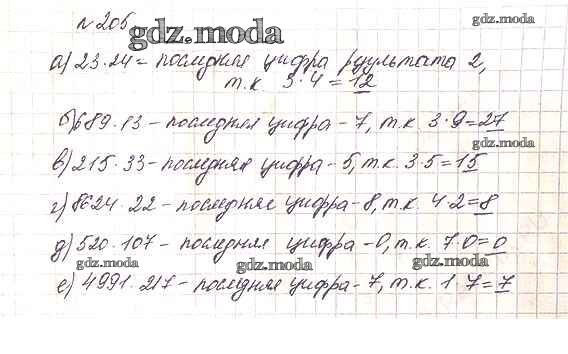 № 205
gdz.moda
gdz.moda
а) 23·24 = последняя цифра результата 2,
т.к 3·4 = 12
gdz.moda
б) 689·13 – последняя цифра – 7, т.к. 3·9=27
gdz.moda
в) 215·33 – последняя цифра – 5, т.к. 3·5=15
г) 8624·22 – последняя цифра – 8, т.к. 4·2=8
gdz.moda gdz.moda
д) 520·107 – последняя цифра – 0, т.к. 7·0=0
gdz.moda gdz.moda gdz.moda
е) 4991·217 – последняя цифра – 7, т.к. 1·7=7